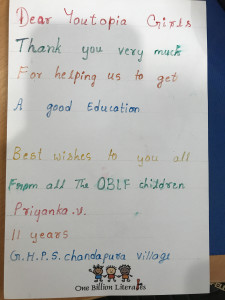 Dear Youtopia Girls
Thank you very much
For helping us to get
A good Education
Best wishes to you all
From all The OBLF children
Priyanka.v.
11 years
G.H.P.S. chandapura village
One Billion Literates